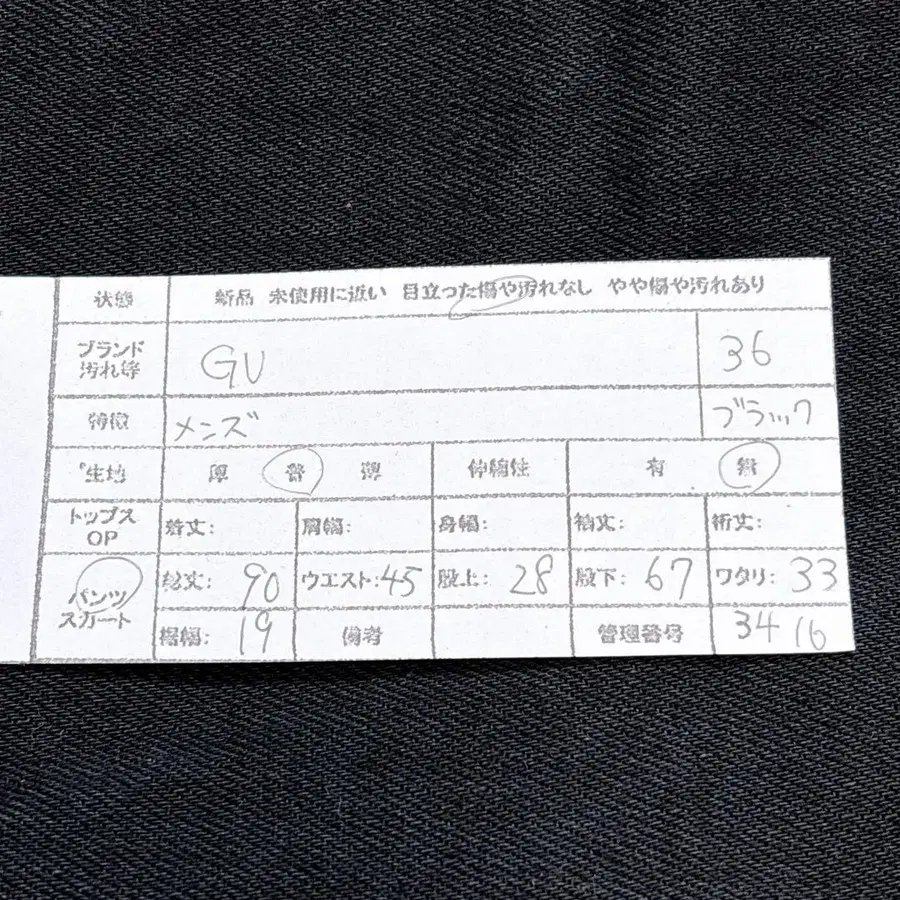 状態 新品 未使用に近い 目立った傷や汚れなし やや傷や汚れあり
ブランド
汚れ等 GU 36
特徴 メンズ ブラック
生地 厚 普 薄 伸縮性 有 無
トップス
OP 着丈: 肩幅: 身幅: 袖丈: 裄丈:
パンツ
スカート 総丈: 90 ウエスト: 45 股上: 28 股下: 67 ワタリ: 33
裾幅: 19 備考 管理番号 3416